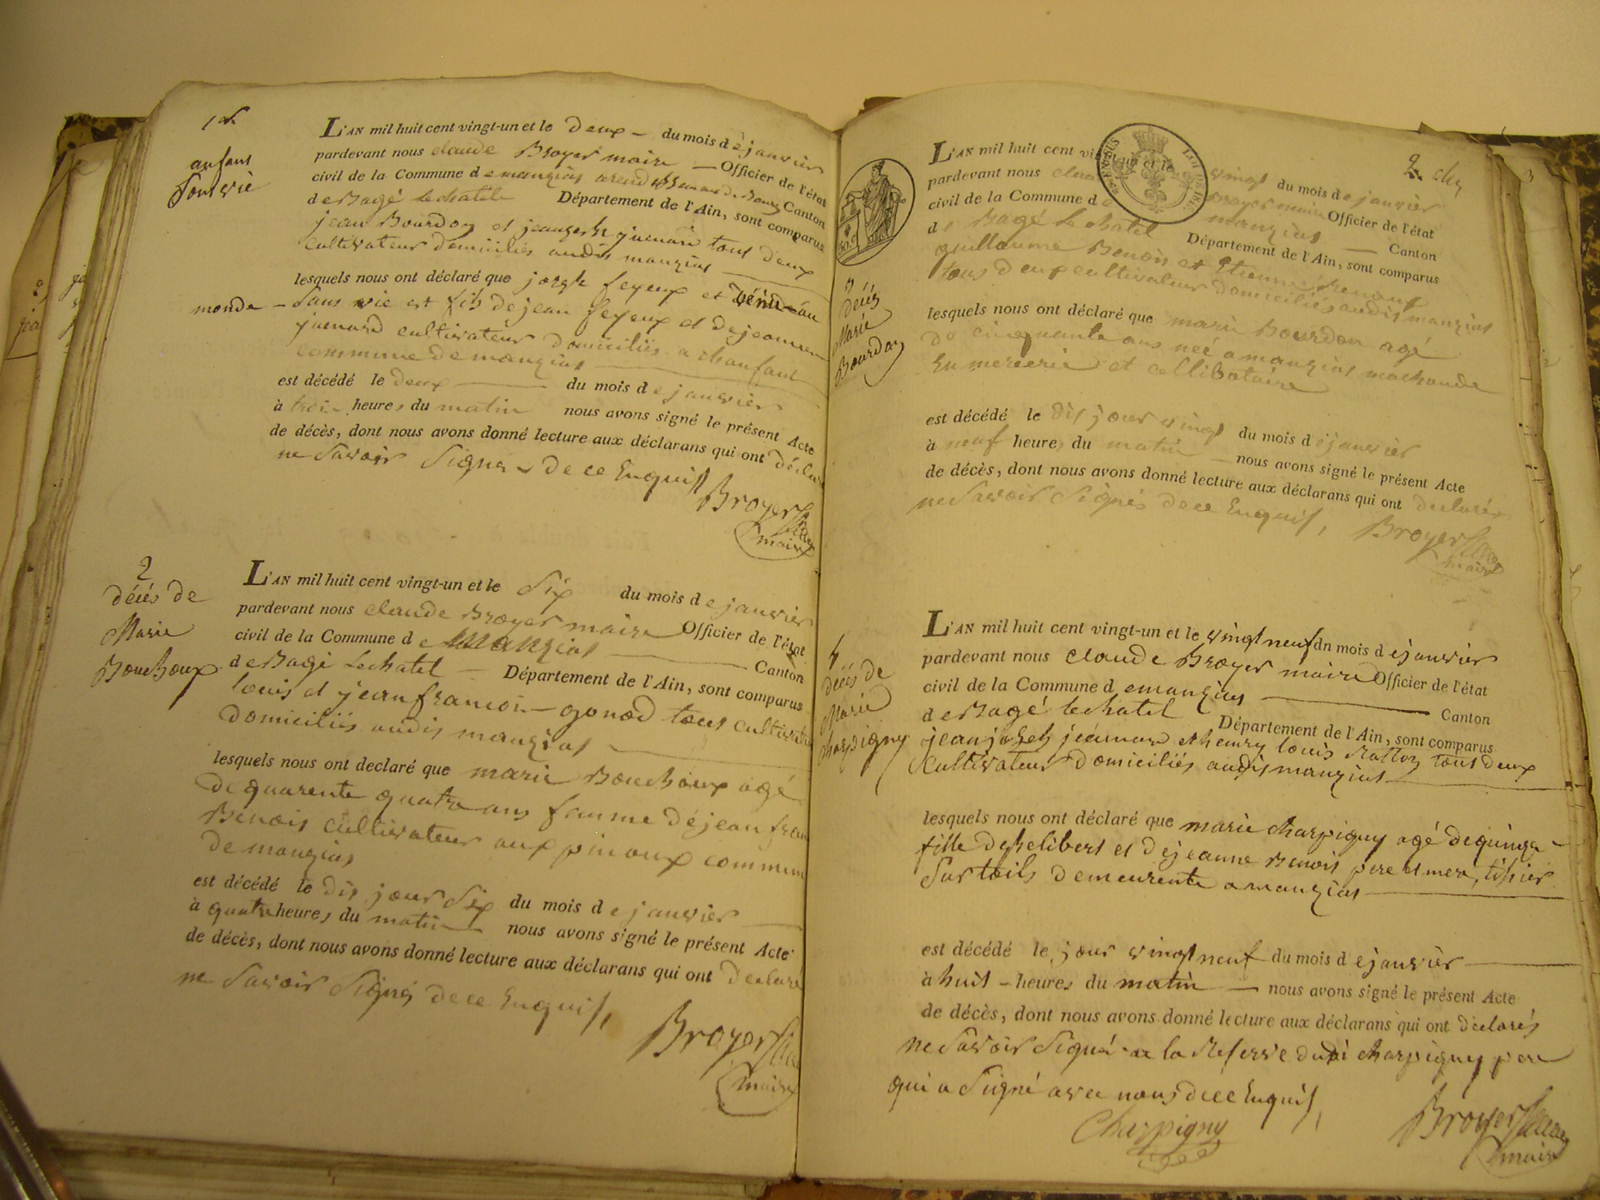 1er
enfant
Sans vie
L'AN mil huit cent vingt-un et le deux du mois de janvier
pardevant nous claude Broyer maire Officier de l'état
civil de la Commune de manzias arrond de Bourg Canton
de Bagé lechatel Département de l'Ain, sont comparus
jean Bourdon et jean juenard tous deux
Cultivateur domiciliés audis manzias
lesquels nous ont déclaré que joseph feyeux et venu au
monde Sans vie est fils de jean feyeux et de jeanne
juenard cultivateur domiciliés a chanfant
commune de manzias
est décédé le deux du mois de janvier
à trois heures du matin nous avons signé le présent Acte
de décès, dont nous avons donné lecture aux déclarans qui ont déclaré
ne Savoir Signer de ce Enquis
Broyer
maire
2
déces de
Marie
Bouchoux
L'AN mil huit cent vingt-un et le Six du mois de janvier
pardevant nous claude Broyer maire Officier de l'état
civil de la Commune de manzias Canton
de Bagé Lechatel Département de l'Ain, sont comparus
louis et jean francois gonod tous cultivateur
domiciliés audis manzias
lesquels nous ont declaré que marie Bouchoux agé
de quarente quatre ans famme de jean
Benois cultivateur aux pinoux commune
de manzias
est décédé le dis jour Six du mois de janvier
à quatre heures du matin nous avons signé le présent Acte
de décès, dont nous avons donné lecture aux déclarans qui ont declaré
ne Savoir Signés de ce Enquis,
Broyer
maire
2.
3
décés
Marie
Bourdon
L'AN mil huit cent vingt-un et le vingt du mois de janvier
pardevant nous claude Broyer maire Officier de l'état
civil de la Commune de manzias Canton
de Bagé le chatel Département de l'Ain, sont comparus
guillaume Benois et Etienne
tous deux cultivateur domiciliés audis manzias
lesquels nous ont déclaré que marie Bourdon agé
de cinquante ans neé a manzias machande
En mercerie et cellibataire
est décédé le dis jour vingt du mois de janvier
à neuf heures du matin nous avons signé le présent Acte
de décès, dont nous avons donné lecture aux déclarans qui ont declarés
ne Savoir Signés de ce Enquis,
Broyer
maire
4
déces de
Marie
charpigny
L'AN mil huit cent vingt-un et le vingt neuf du mois de janvier
pardevant nous claude Broyer maire Officier de l'état
civil de la Commune de manzias Canton
de Bagé lechatel Département de l'Ain, sont comparus
jean joseph juenard et henry louis tous deux
Cultivateur domiciliés audis manzias
lesquels nous ont déclaré que marie charpigny agé de quinze
fille de philibert et de jeanne Benois pere et mere, tissier
Sur toils demeurente a manzias
est décédé le jour vingt neuf du mois de janvier
à huit heures du matin nous avons signé le présent Acte
de décès, dont nous avons donné lecture aux déclarans qui ont declarés
ne Savoir Signé a la Reserve dudi charpigny pere
qui a Signé avec nous de ce Enquis,
Charpigny
Broyer
maire